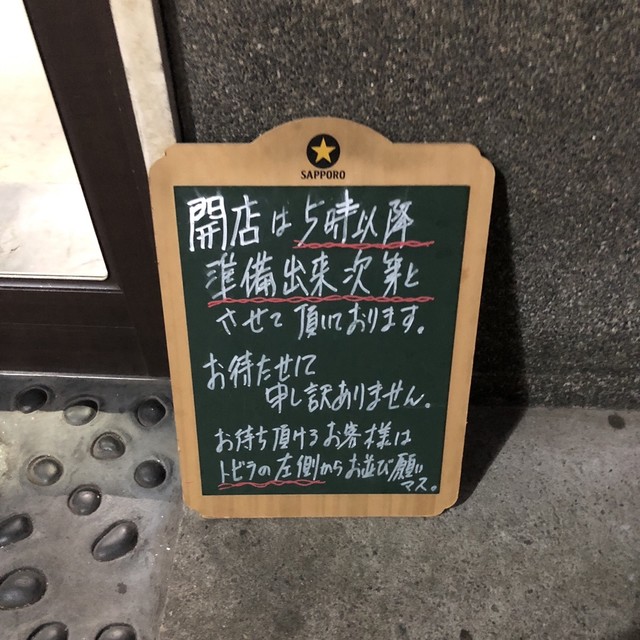 SAPPORO
開店は5時以降
準備出来次第と
させて頂いております。
お待たせして
申し訳ありません。
お待ち頂けるお客様は
トビラの左側からお並び願い
マス。